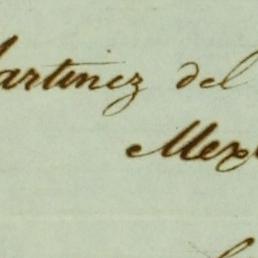 artinez del
Mex